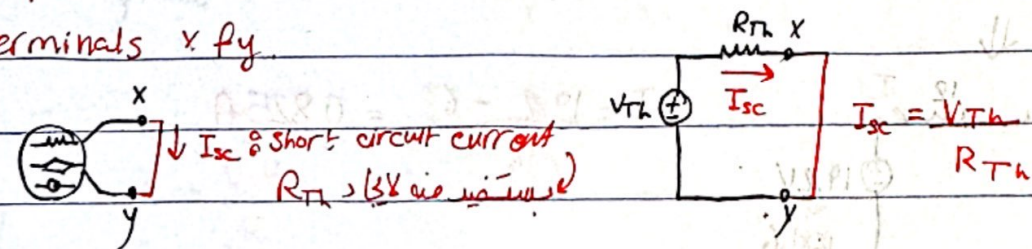 erminals x & y
x
Isc : Short circuit current
نستفيد منه لايجاد RTh
y
RTh x
VTh
Isc
y
Isc = VTh
RTh